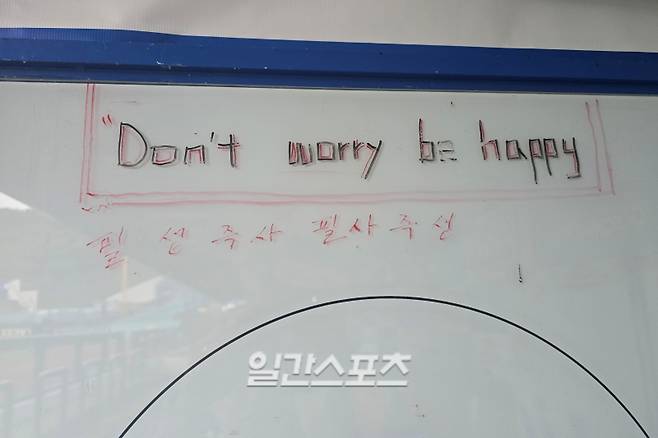 "Don't worry be happy
필 생 즉 사 필 사 즉 생
일간스포츠